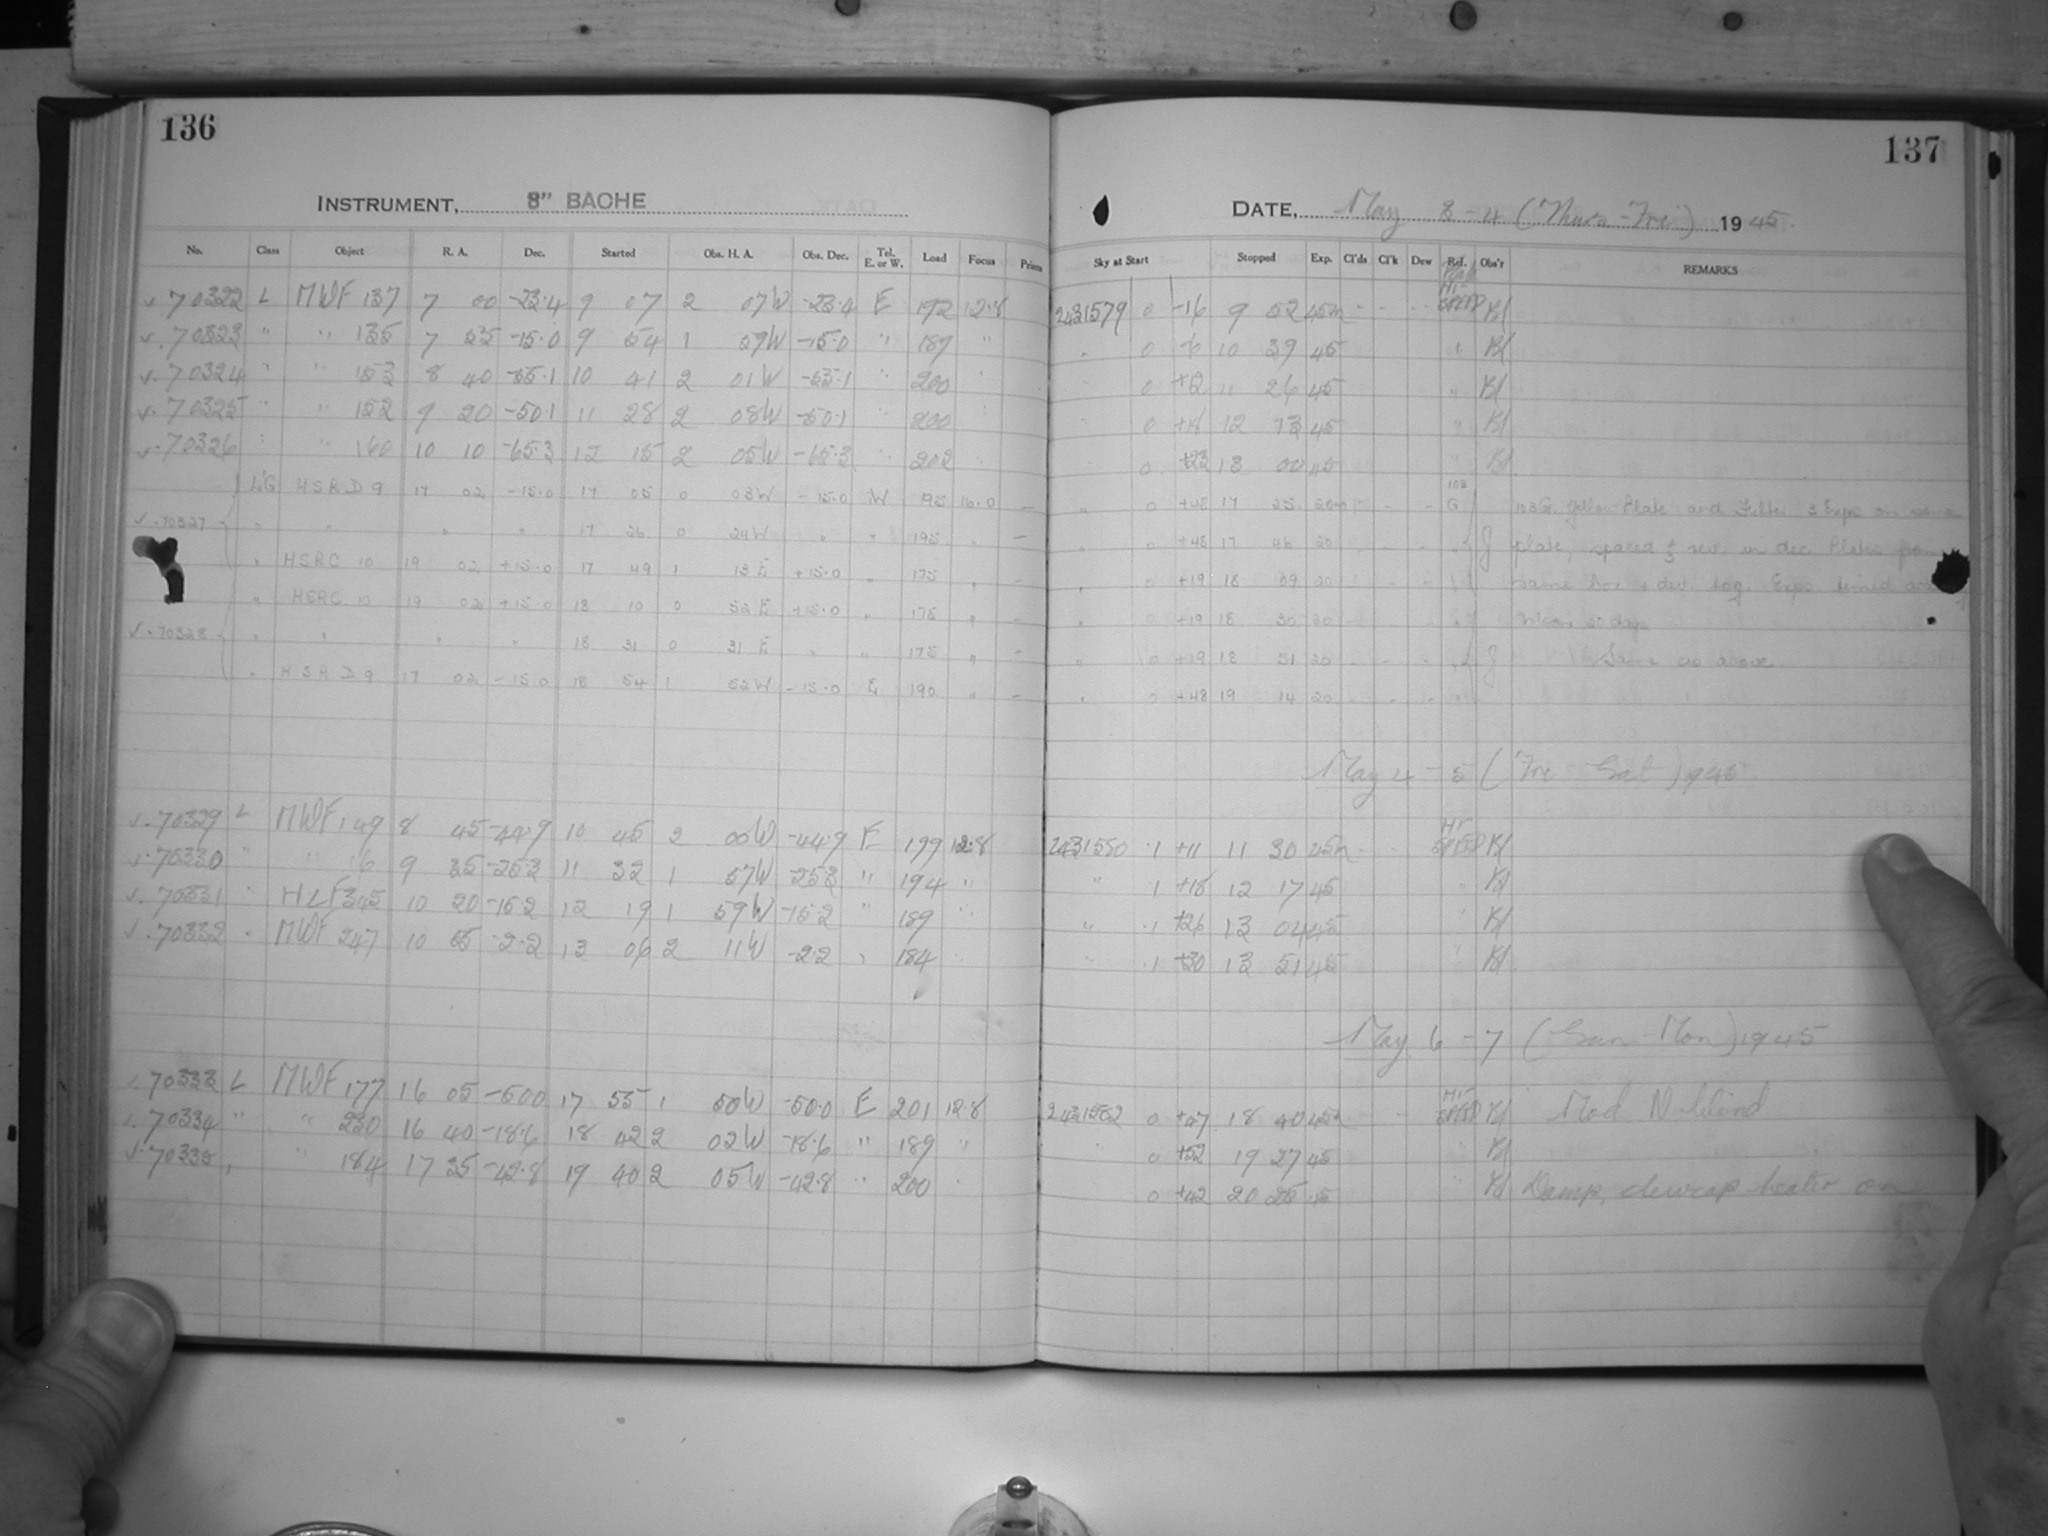 136
INSTRUMENT, 8" BACHE
No. Class Object R. A. Dec. Started Obs. H. A. Obs. Dec. Tel. E. or W. Load Focus Prism
70322 L MWF 137 7 00 -23.4 9 07 2 07W -23.4 E 192 12.8
70323 " " 135 7 55 -15.0 9 54 1 59W -15.0 " 189 "
70324 " " 153 8 40 -55.1 10 41 2 01W -55.1 " 200
70325 " " 152 9 20 -50.1 11 28 2 08W -50.1 " 200
70326 " " 160 10 10 -65.3 12 15 2 05W -65.3 " 202
HSRD 9 17 02 -15.0 17 05 0 03W -15.0 W 195 16.0 -
70327 " " " " 17 26 0 24W " " 195 " -
" HSRC 10 19 02 +15.0 17 49 1 13E +15.0 " 175 " -
" HSRC 10 19 02 +15.0 18 10 0 52E +15.0 " 175 " -
70328 " " " " 18 31 0 31E " " 175 " -
" HSRD 9 17 02 -15.0 18 54 1 52W -15.0 E 190 " -
70329 L MWF 149 8 45 -44.9 10 45 2 00W -44.9 E 199 12.8
70330 " " 9 35 -25.3 11 32 1 57W -25.3 " 194 "
70331 " HLF 345 10 20 -15.2 12 19 1 59W -15.2 " 189 "
70332 " MWF 247 10 55 -2.2 13 06 2 11W -2.2 " 184 "
70333 L MWF 177 16 05 -50.0 17 55 1 50W -50.0 E 201 12.8
70334 " " 230 16 40 -18.6 18 42 2 02W -18.6 " 189 "
70335 " " 184 17 35 -42.8 19 40 2 05W -42.8 " 200
137
DATE, May 3-4 (Thurs-Fri) 1945.
Sky at Start Stopped Exp. Cl'ds Cl'k Dew Ref. Obs'r REMARKS
2431579 0 -16 9 52 45m HI-SPEED
" 0 10 39 45 "
" 0 +12 11 26 45 "
" 0 +18 12 13 45 "
0 +23 13 00 45 "
" 0 +48 17 25 20m 103 G 103G Yellow Plate and Filter 3 Exps on same
" 0 +48 17 46 20 plate, spaced in dec. Plates from
" 0 +19 18 09 20 same box & dev. tog. Exps timed
" 0 +19 18 30 20
" 0 +19 18 51 20 Same as above.
" 0 +48 19 14 20
May 4-5 (Fri Sat) 1945.
2431580 1 +11 11 30 45m HI-SPEED
" 1 +18 12 17 45 "
" 1 +26 13 04 45 "
" 1 +30 13 51 45 "
May 6-7 (Sun-Mon) 1945
2431582 0 +47 18 40 45m HI-SPEED Mod N. Wind
" 0 +52 19 27 45
0 +42 20 25 45 " Damp, dewcap heater on